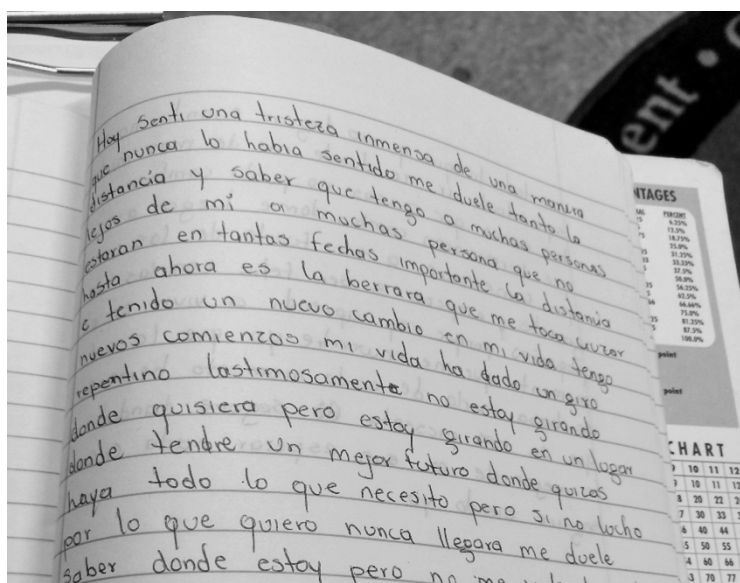 Hoy senti una tristeza inmensa de una manera
que nunca lo habia sentido me duele tanto la
distancia y saber que tengo a muchas personas
lejos de mi a muchas persona que no
estaran en tantas fechas importante la distania
hasta ahora es la berrara que me toca
e tenido un nuevo cambio en mi vida tengo
nuevos comienzos mi vida ha dado un giro
repentino lastimosamente no estoy girando
donde quisiera pero estoy girando en un lugar
donde tendre un mejor futuro donde quizas
haya todo lo que necesito pero si no lucho
por lo que quiero nunca llegara me duele
saber donde estoy pero no me
ent
NTAGES
PERCENT
6.25%
12.5%
18.75%
25.0%
31.25%
33.33%
37.5%
50.0%
56.25%
62.5%
66.66%
75.0%
81.25%
87.5%
100.0%
point
point
CHART
10 11 12
10 11 12
8 20 22
7 30 33
6 40 44
5 50 55
4 60 66
3 70 77